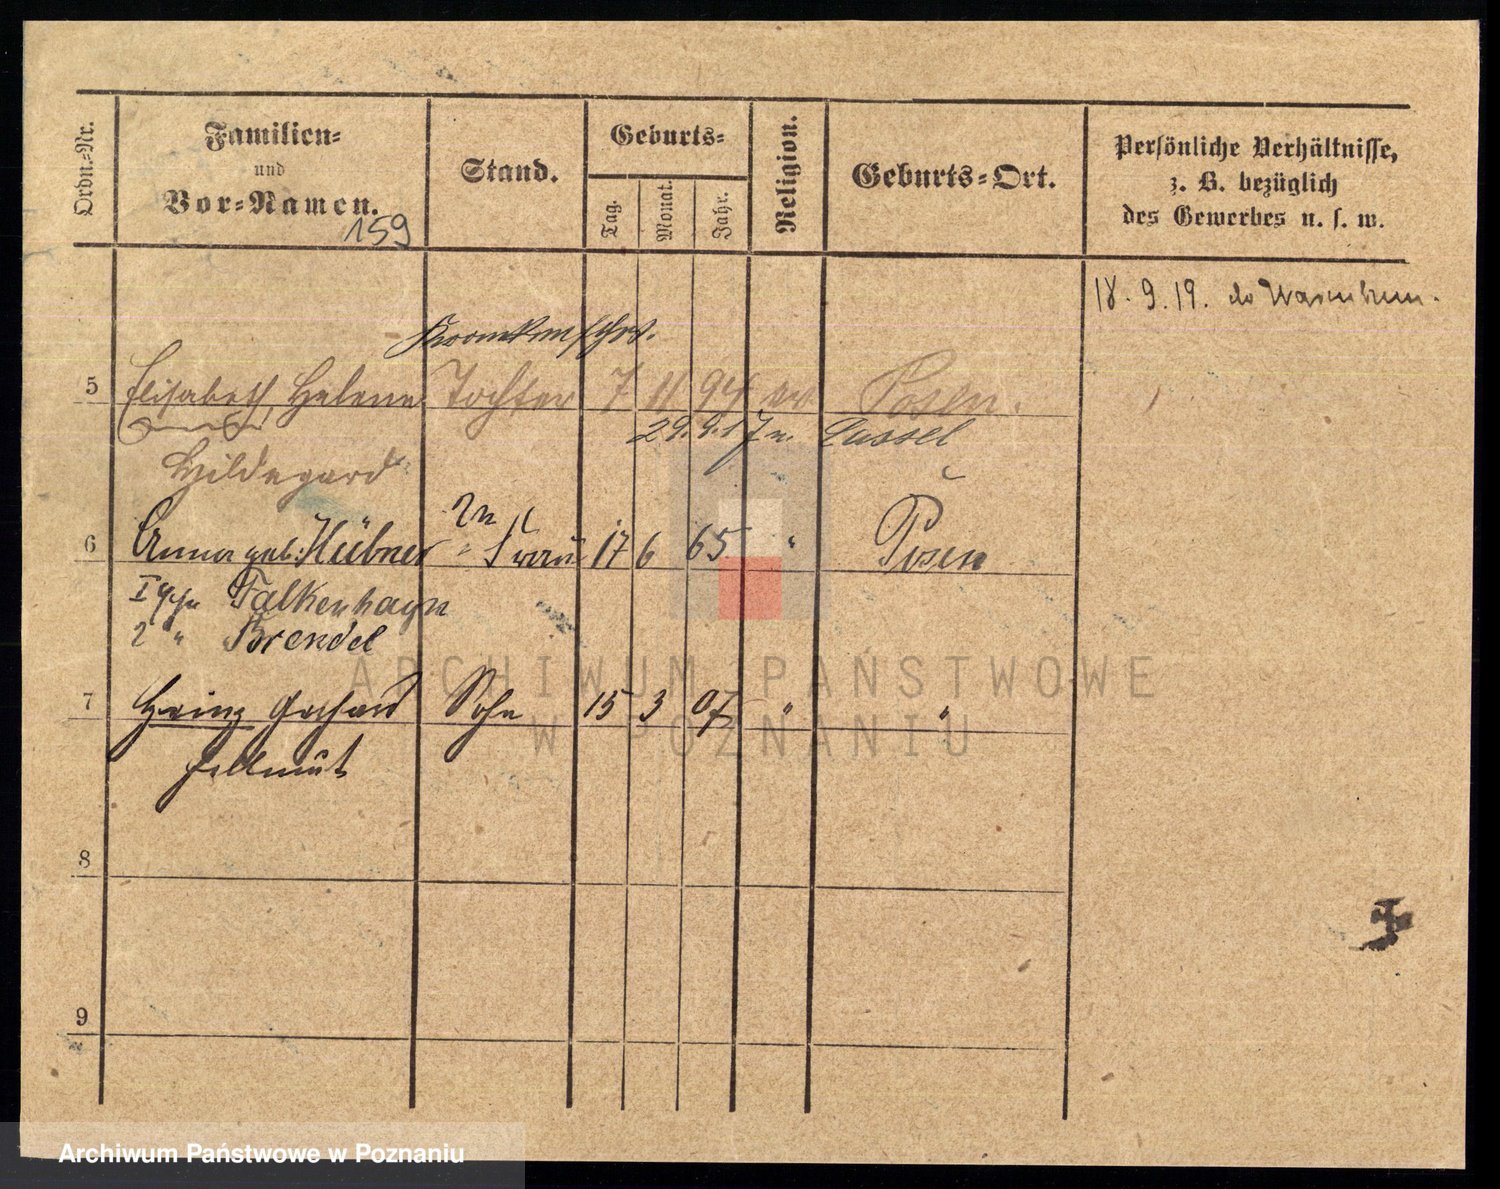 Ordn.=Nr.
Familien=
und
Vor=Namen.
159
Stand.
Geburts=
Tag.
Monat.
Jahr.
Religion.
Geburts=Ort.
Persönliche Verhältnisse,
z. B. bezüglich
des Gewerbes u. s. w.
18. 9. 19. do
5 Elisabeth, Helene Tochter 7 11 94 ev Posen.
29. 9. 17 n. Cassel
Hildegard
6 Anna geb: Hübner Frau 17 6 65 " Posen
Falkenhagen
2 " Brendel
7 Heinz Gerhard Sohn 15 3 07 " "
Hellmut
8
9
ARCHIWUM PAŃSTWOWE
W POZNANIU
Archiwum Państwowe w Poznaniu